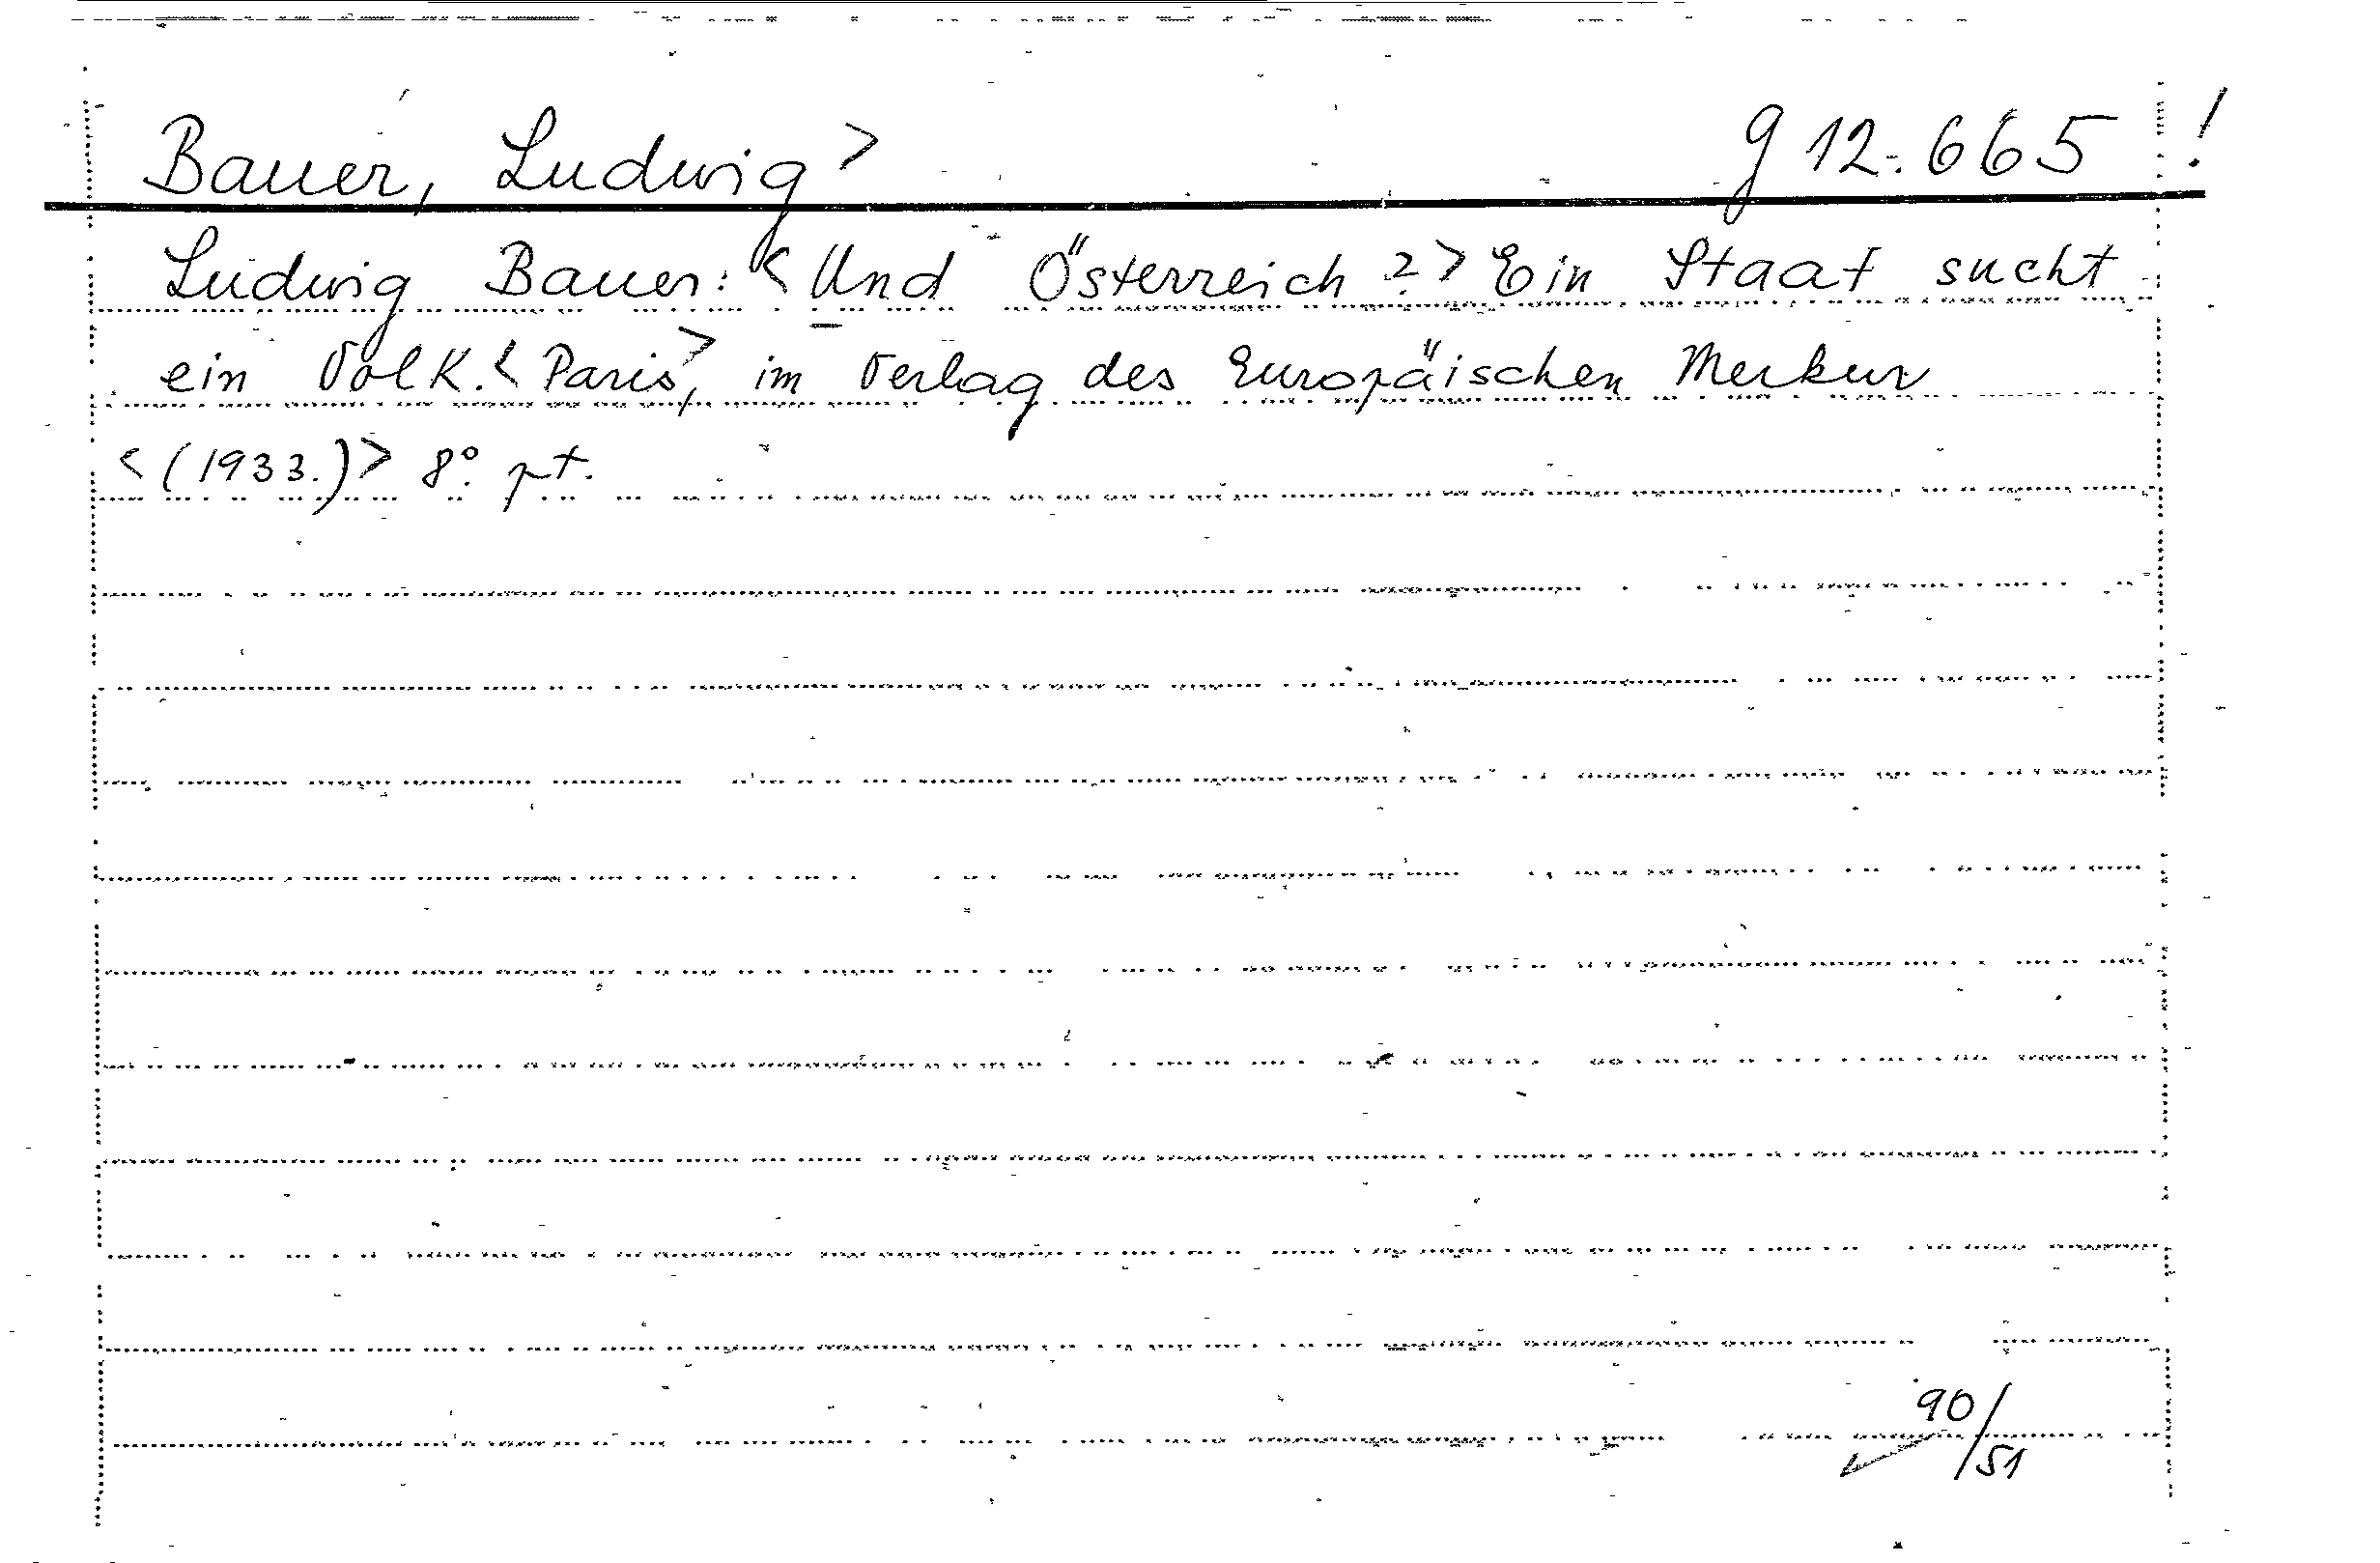 Bauer, Ludwig> g 12.665 !
Ludwig Bauer: <Und Österreich?> Ein Staat sucht
ein Volk. <Paris>, im Verlag des Europäischen Merkur
<(1933.)> 8°. pt.
90/51